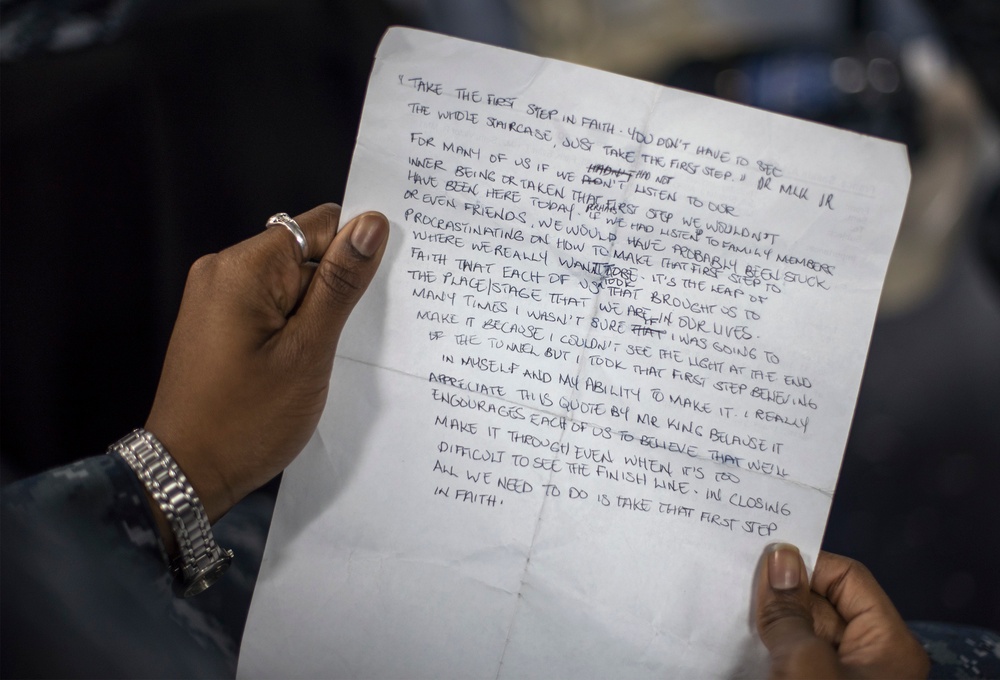 "TAKE THE FIRST STEP IN FAITH. YOU DON'T HAVE TO SEE
THE WHOLE STAIRCASE, JUST TAKE THE FIRST STEP." DR MLK JR
FOR MANY OF US IF WE HAD NOT LISTEN TO OUR
INNER BEING OR TAKEN THAT FIRST STEP WE WOULDN'T
HAVE BEEN HERE TODAY. IF WE HAD LISTEN TO FAMILY MEMBERS
OR EVEN FRIENDS, WE WOULD HAVE PROBABLY BEEN STUCK
PROCRASTINATING ON HOW TO MAKE THAT FIRST STEP TO
WHERE WE REALLY WANT TO BE. IT'S THE LEAP OF
FAITH THAT EACH OF US TOOK THAT BROUGHT US TO
THE PLACE/STAGE THAT WE ARE IN OUR LIVES.
MANY TIMES I WASN'T SURE IF I WAS GOING TO
MAKE IT BECAUSE I COULDN'T SEE THE LIGHT AT THE END
OF THE TUNNEL BUT I TOOK THAT FIRST STEP BELIEVING
IN MYSELF AND MY ABILITY TO MAKE IT. I REALLY
APPRECIATE THIS QUOTE BY MR KING BECAUSE IT
ENCOURAGES EACH OF US TO BELIEVE THAT WE'LL
MAKE IT THROUGH EVEN WHEN IT'S TOO
DIFFICULT TO SEE THE FINISH LINE. IN CLOSING
ALL WE NEED TO DO IS TAKE THAT FIRST STEP
IN FAITH.